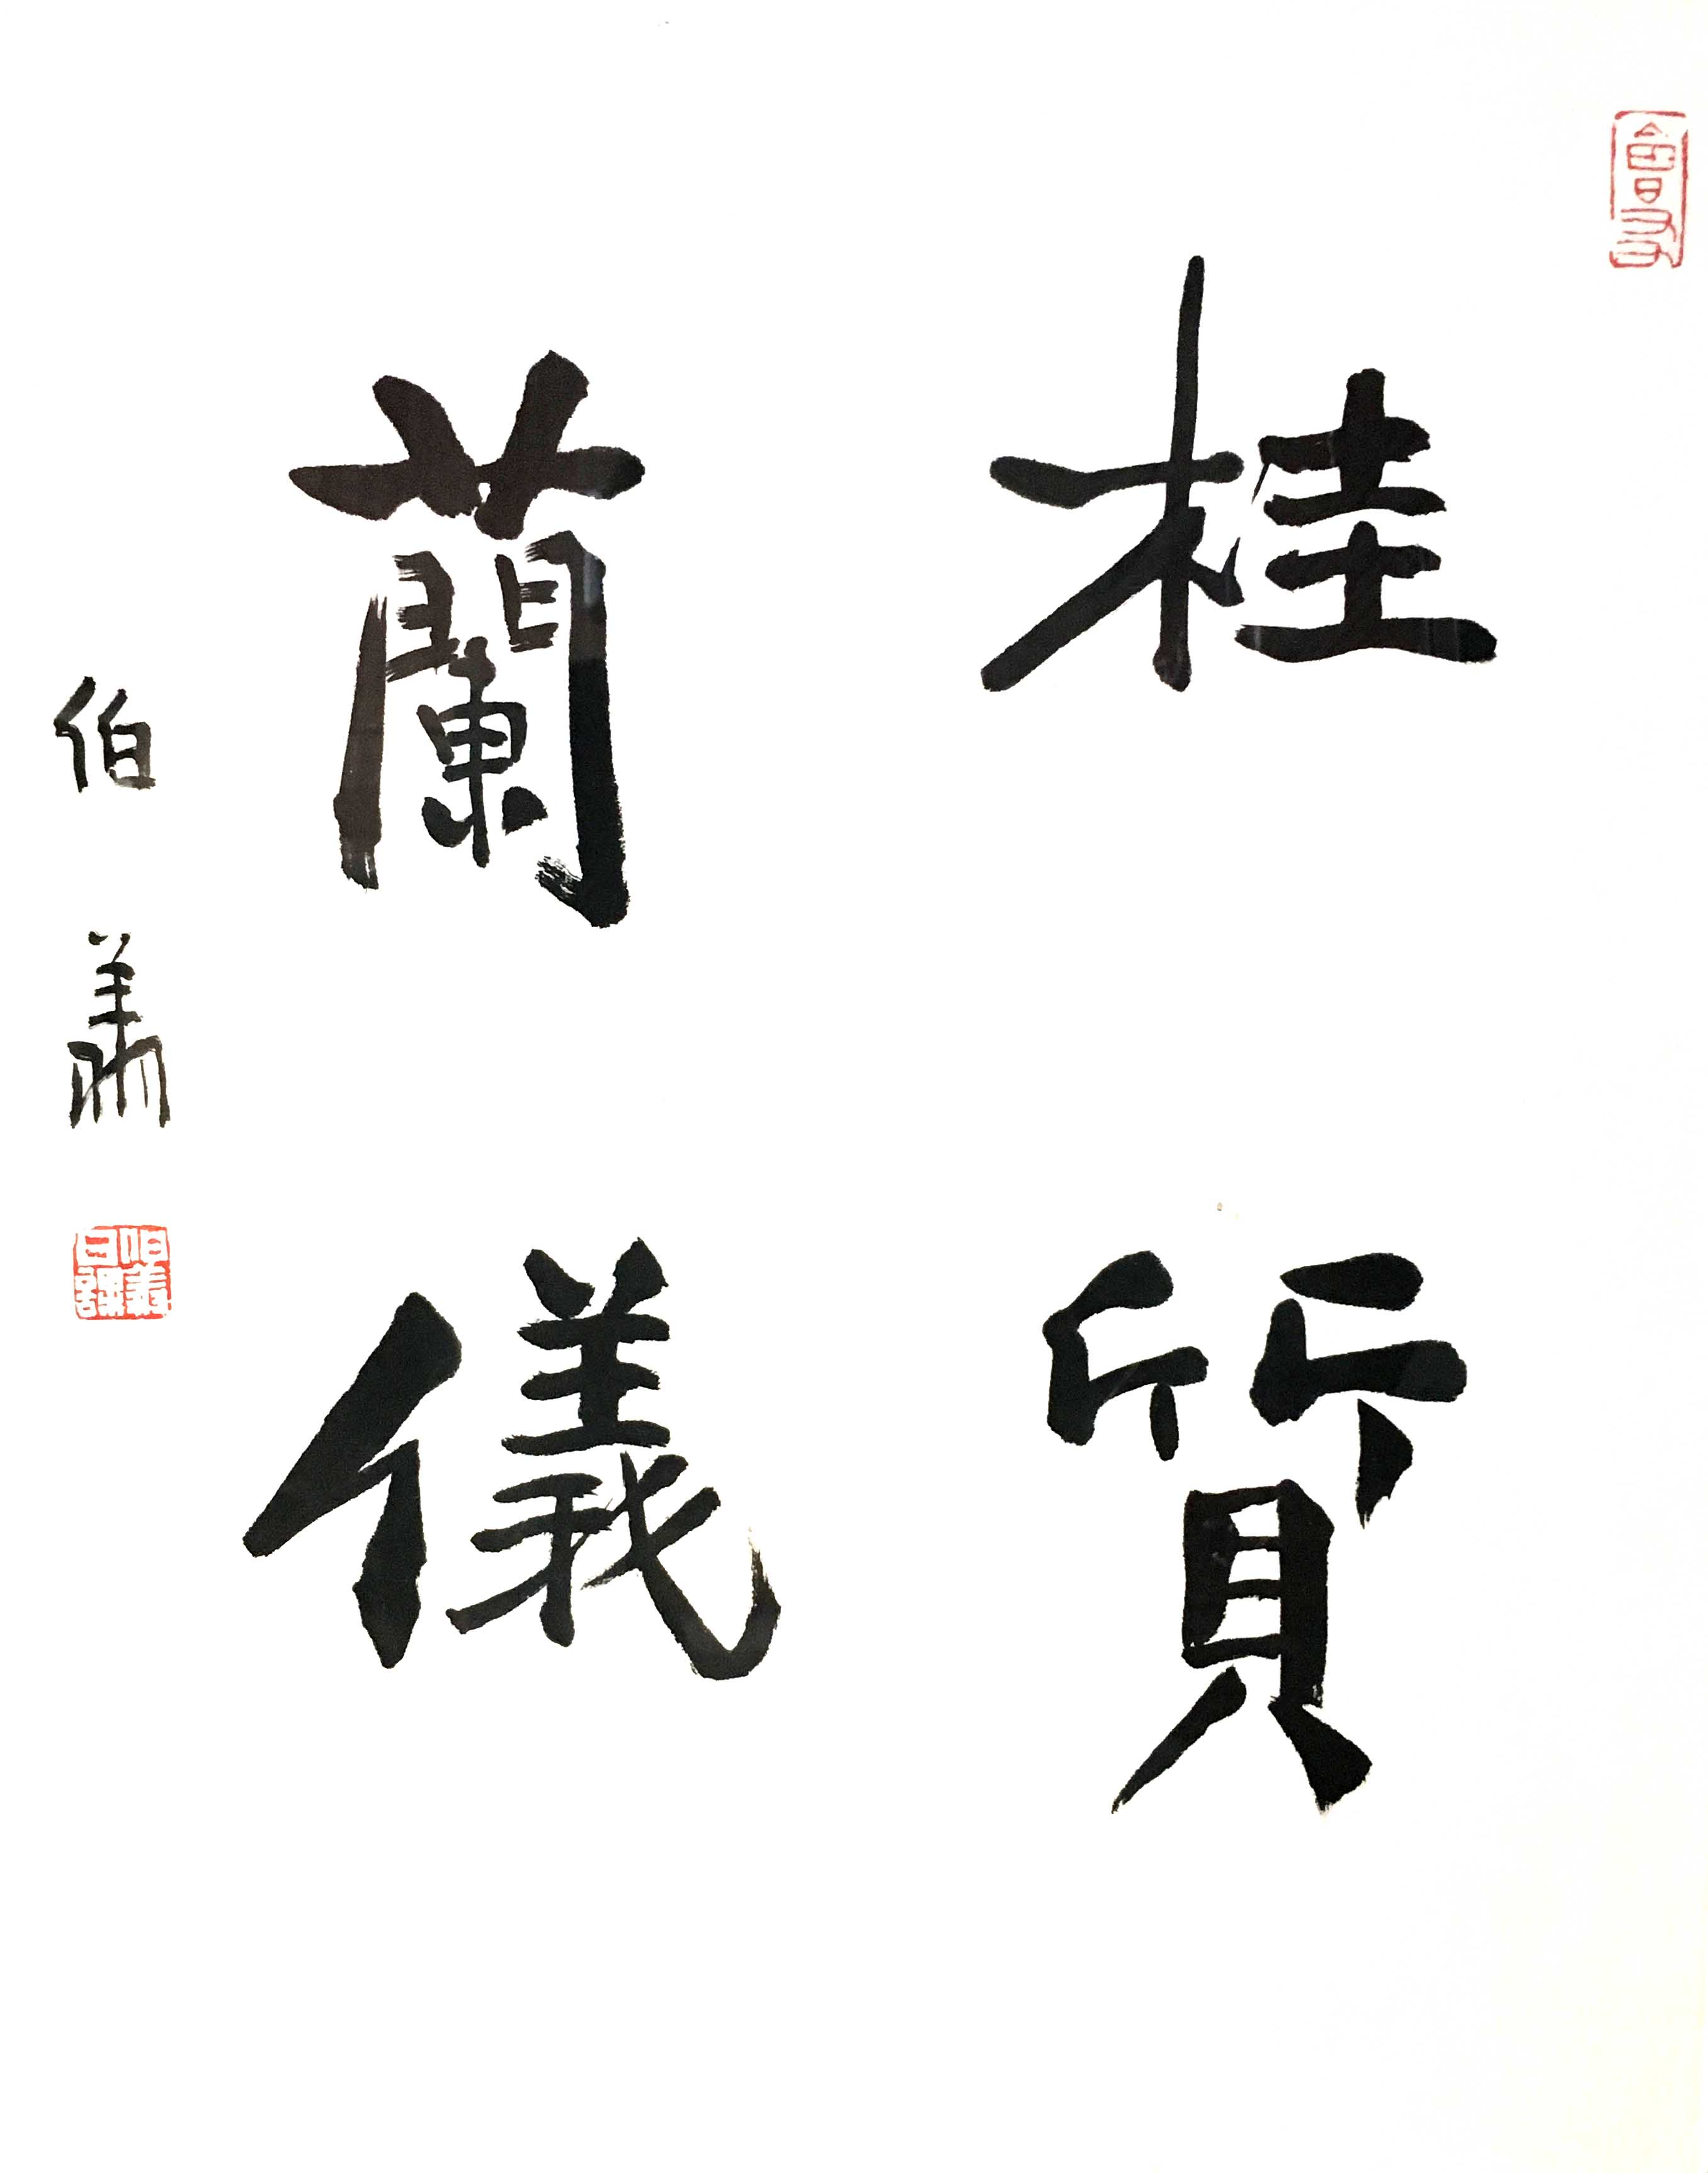 桂質
蘭儀
伯